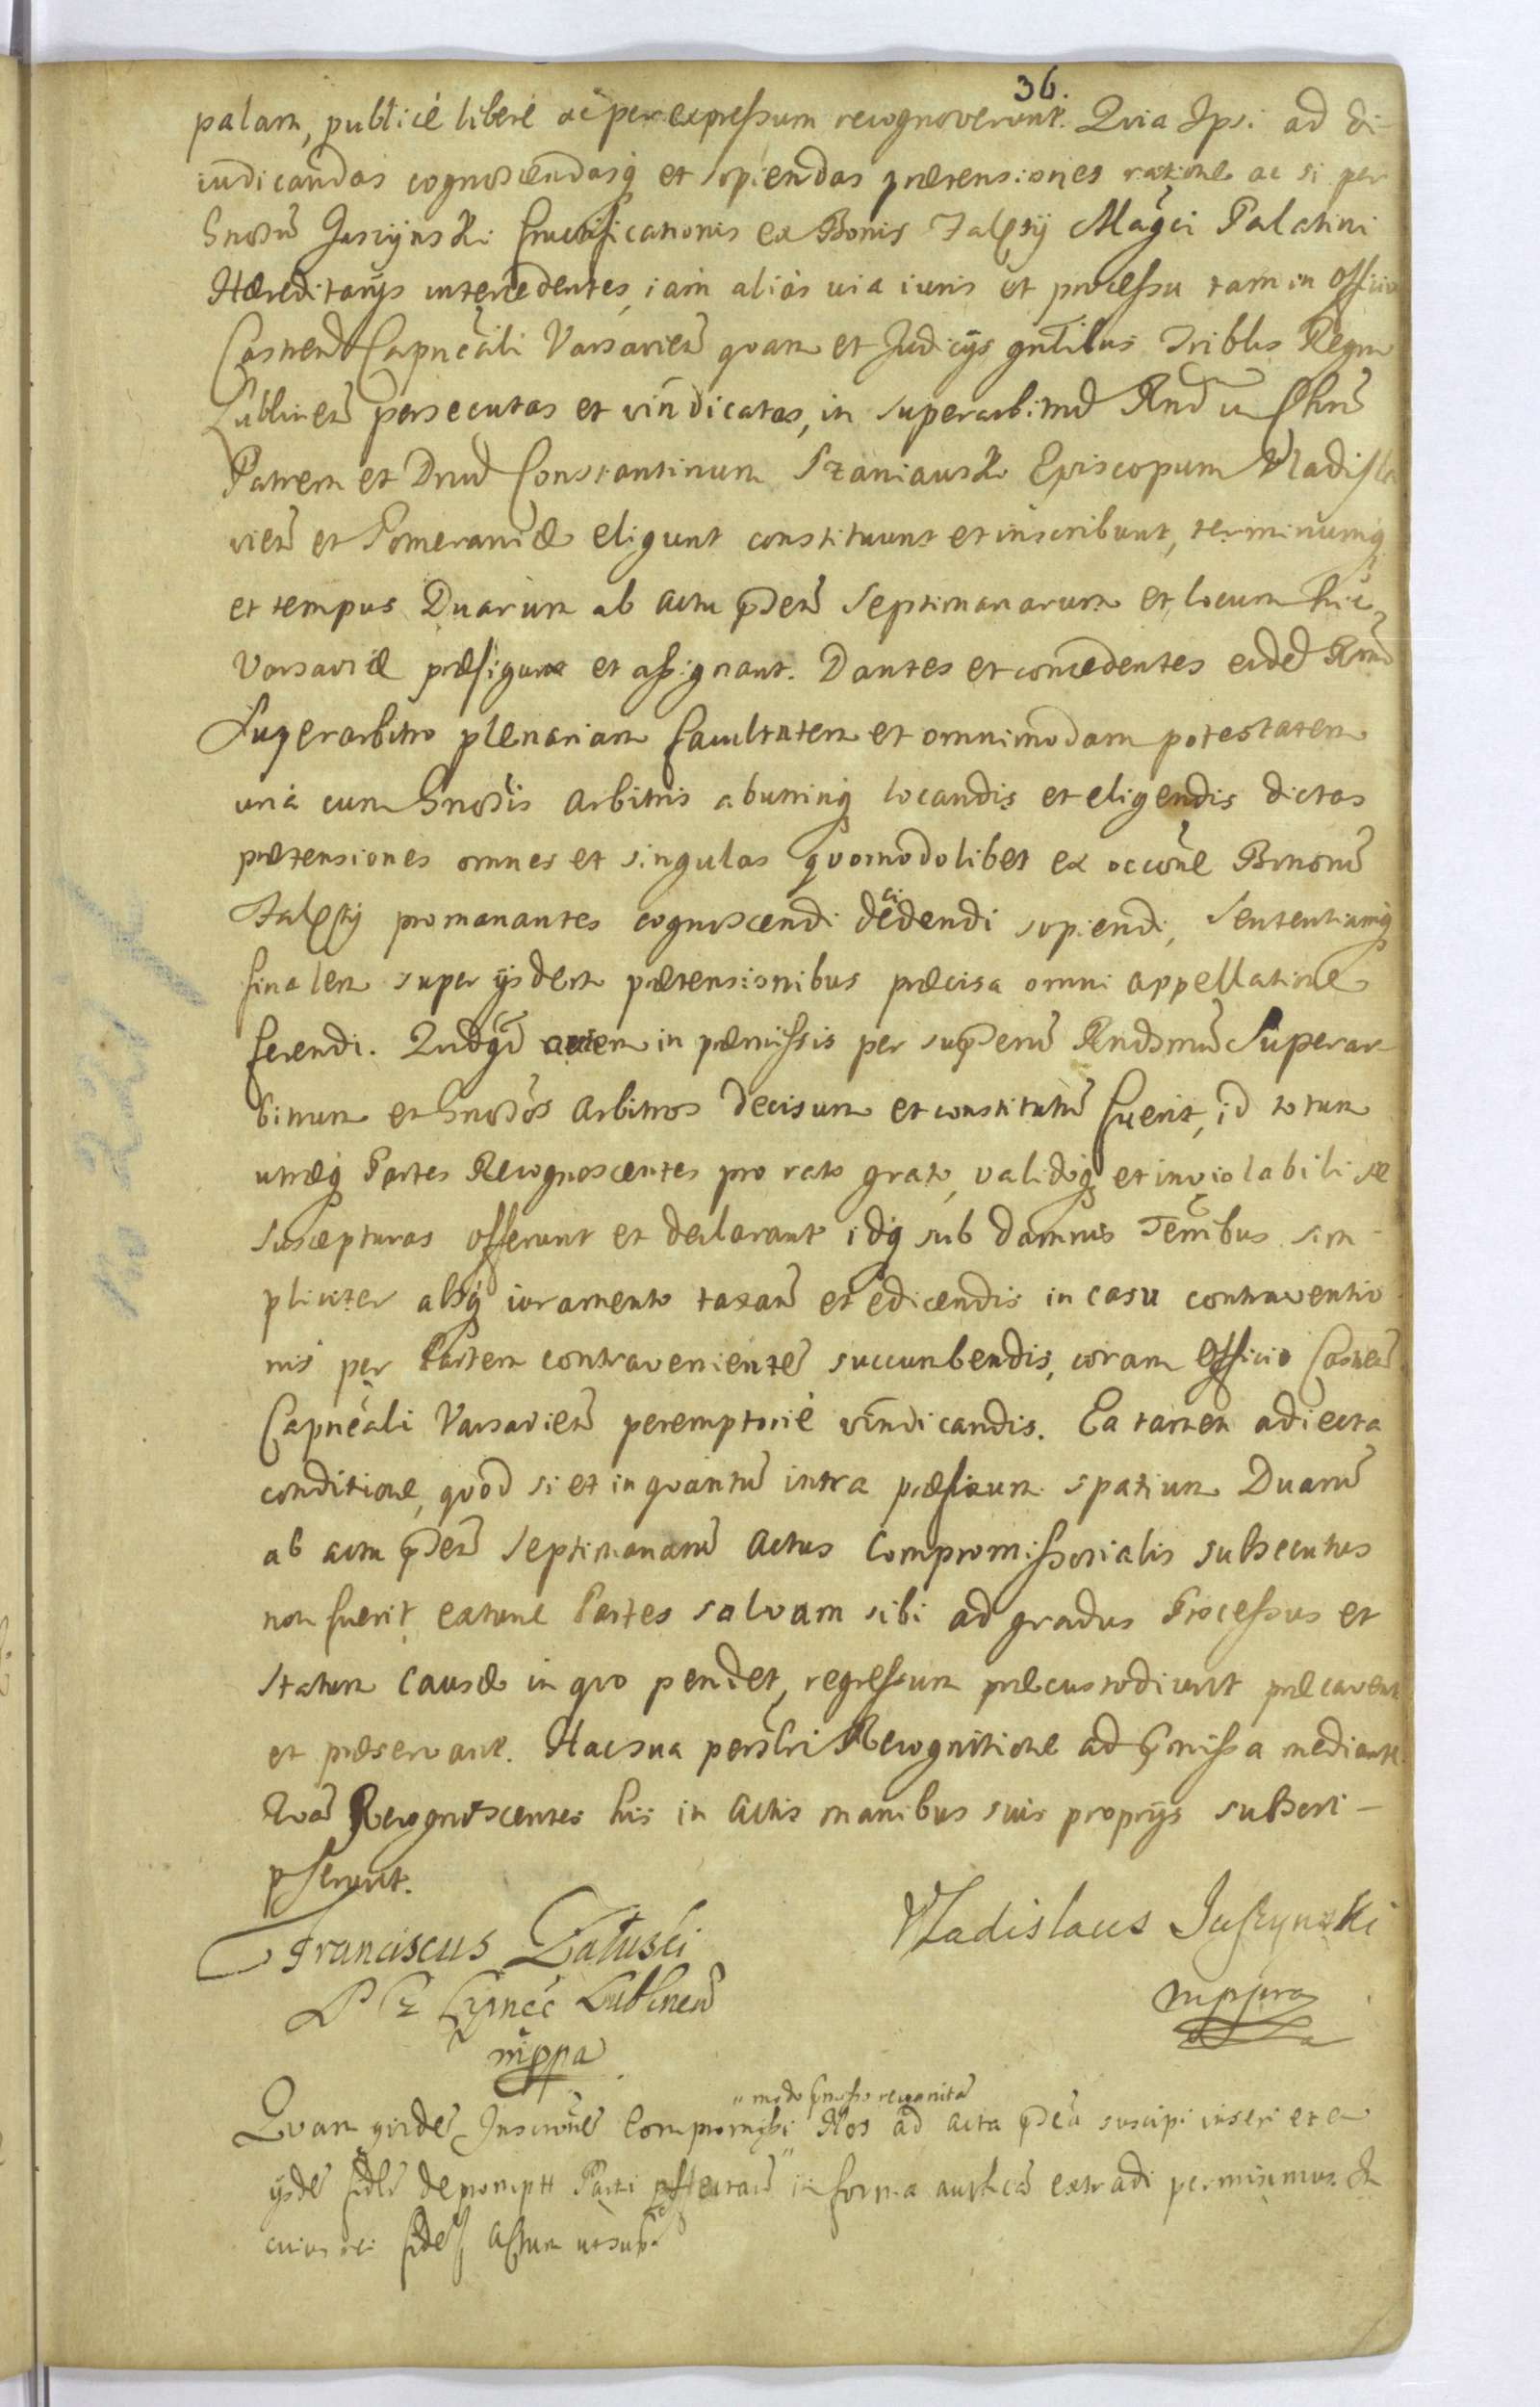 36.
palam, publicè liberè ac per expressum recognoverunt. Quia Ipsi ad di-
iudicandas cognoscendasq et sopiendas prætensiones ratione ac si per
Gnosũ Juszynski fructificationis ex Bonis Falęty Magci Palatini
Hæreditarys intercedentes, iam aliàs via iuris et processu tam in Officio
Castren Capneali Varsavien quam et Judicys gnlibus Triblis Regni
Lublinen persecutas et vindicatas, in superarbitrũ Rndũ in Chrõ
Patrem et Dnũ Constantinum Szaniawski Episcopum Vladisla
vien et Pomeraniæ eligunt constituunt et inscribunt, terminumq
et tempus Duarum ab actu pñti Septimanarum et locum hic
Varsaviæ præfigunt et assignant. Dantes et concedentes eidẽ Rndo
Superarbitro plenariam facultatem et omnimodam potestatem
unà cum Gnosis Arbitris ab utrinq locandis et eligendis dictas
prætensiones omnes et singulas quomodolibet ex occõne Bonorũ
Falęty promanantes cognoscendi decidendi sopiendi, Sententiamq
finalem super ysdem prætensionibus præcisa omni appellatione
ferendi. Quidqũ autem in præmissis per supratũ Rndsmũ Superar-
bitrum et Gnosos Arbitros decisum et constitutũ fuerit, id totum
utræq Partes Recognoscentes pro rato grato, validoq et inviolabili se
suscepturas offerunt et declarant idq sub damnis Terribus sim-
pliciter absq iuramento taxan et edicendis in casu contraventio
nis per Partem contravenientẽ succumbendis, coram Officio Castren
Capneali Varsavien peremptoriè vindicandis. Ea tamen adiecta
conditione, quod si et in quantũ intra præfixum spatium Duarũ
ab actu pñti Septimanarũ Actus Compromissorialis subsecutus
non fuerit extunc Partes salvam sibi ad gradus Processus et
statum Causæ in quo pendet, regressum præcustodiunt præcavent
et præservant. Hac sua personli Recognitione ad præmissa mediante
Quã Recognoscentes hic in Actis manibus suis proprys subscri-
pserunt.
Franciscus Załuski
P C Cżrnec Lublinen
mppa
Vladislaus Juszynski
mppra
modo præmisso recognitã
Quam quidẽ Inscrõnẽ Compromissi Nos ad acta pñtia suscipi inseri et e
ysdẽ fidelr deprompt Parti affectan in forma authca extradi permisimus. In
cuius rei fidẽ Actum ut supra